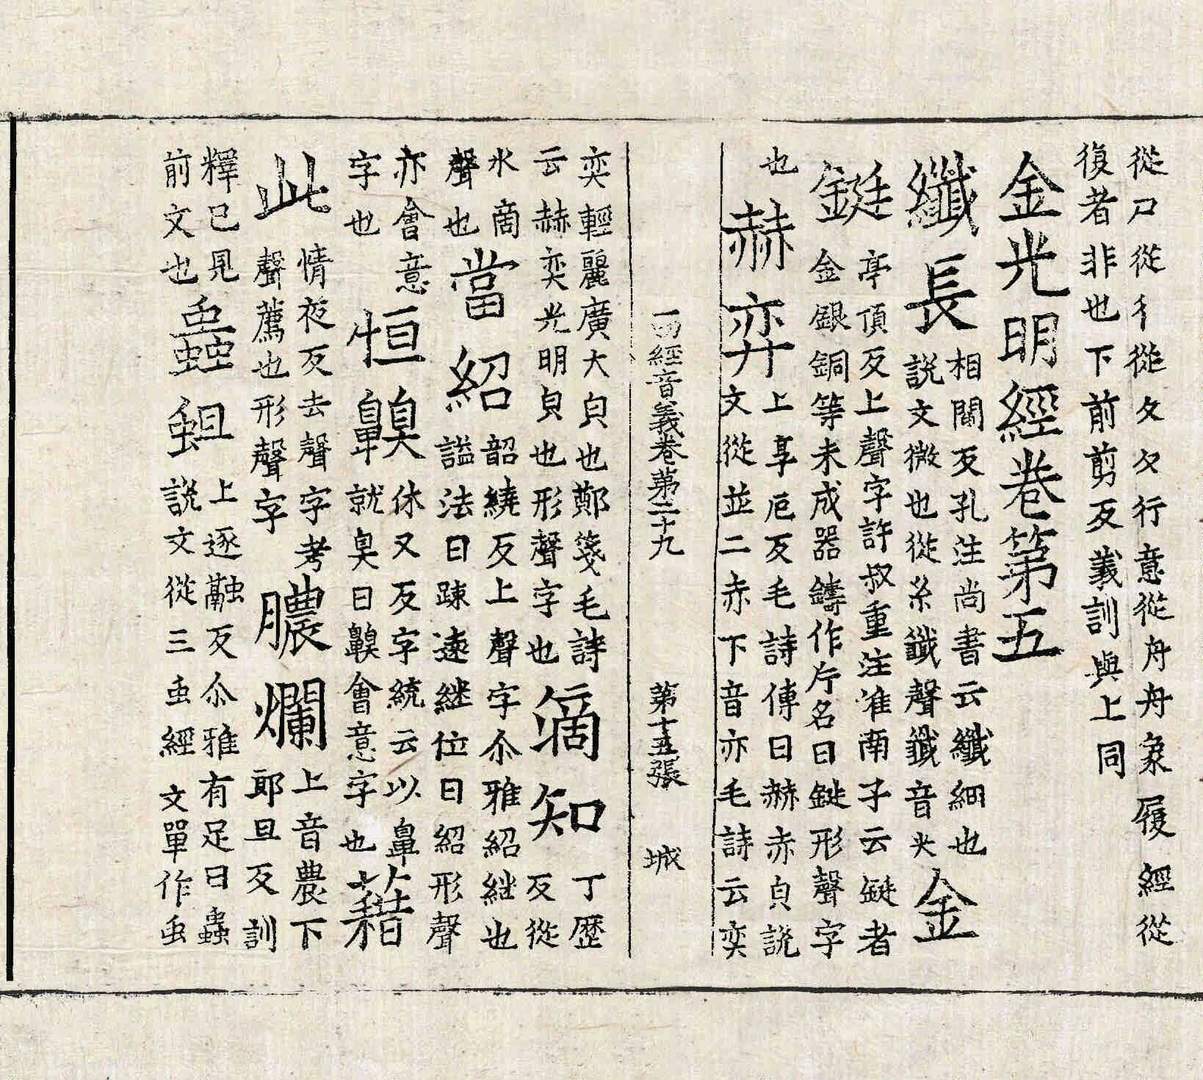 從尸從彳從夂夂行意從舟舟象履經從
復者非也下前剪反義訓與上同
金光明經卷第五
纖長相閻反孔注尚書云纖細也說文微也從糸韱聲韱音尖金
鋌亭頂反上聲字許叔重注淮南子云鋌者金銀銅等未成器鑄作片名曰鋌形聲字
也赫弈上享厄反毛詩傳曰赫赤皃說文從並二赤下音亦毛詩云奕
一切經音義卷第二十九 第十五張 城
奕輕麗廣大皃也鄭箋毛詩云赫奕光明皃也形聲字也滴知丁歷反從
水啇聲也當紹韶繞反上聲字尒雅紹繼也謚法曰踈遠繼位曰紹形聲
亦會意字也恒齅休又反字統云以鼻就臭曰齅會意字也藉
此情夜反去聲字考聲薦也形聲字膿爛上音農下郎旦反訓
釋已見前文也蟲蛆上逐融反尒雅有足曰蟲說文從三虫經文單作虫